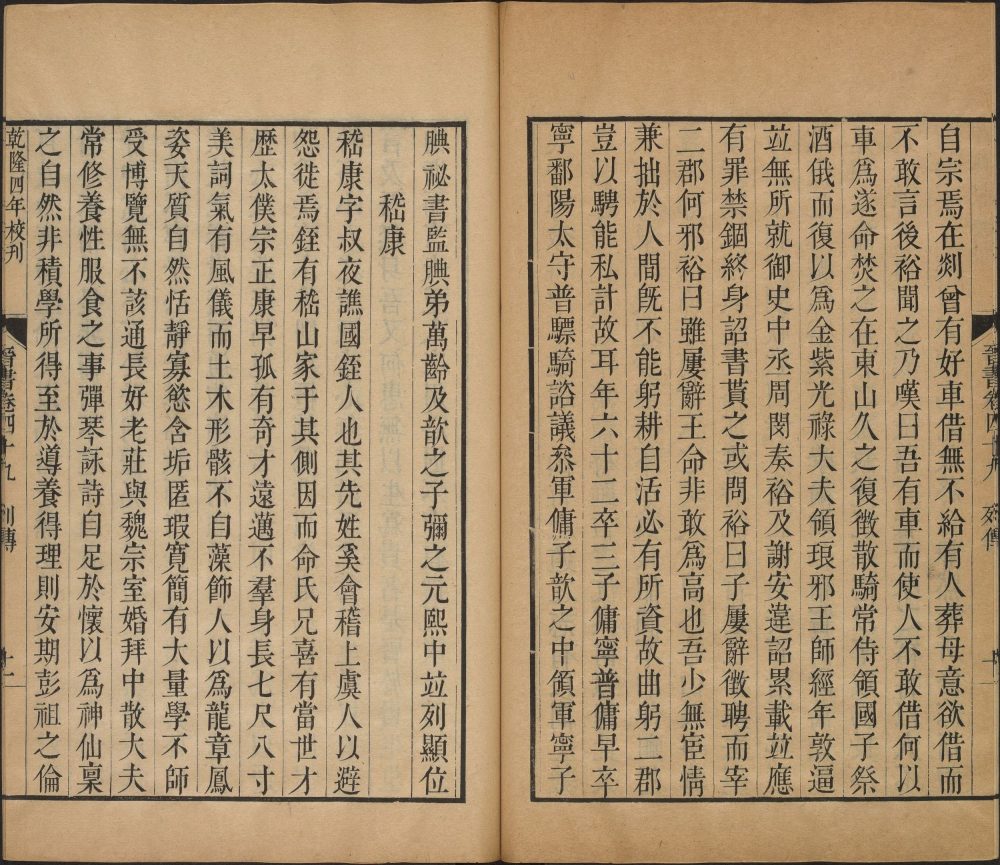 自宗焉在剡曾有好車借無不給有人葬母意欲借而
不敢言後裕聞之乃嘆曰吾有車而使人不敢借何以
車爲遂命焚之在東山久之復徵散騎常侍領國子祭
酒俄而復以爲金紫光祿大夫領琅邪王師經年敦逼
竝無所就御史中丞周閔奏裕及謝安違詔累載竝應
有罪禁錮終身詔書貰之或問裕曰子屢辭徵聘而宰
二郡何邪裕曰雖屢辭王命非敢爲高也吾少無宦情
兼拙於人間旣不能躬耕自活必有所資故曲躬二郡
豈以騁能私計故耳年六十二卒三子傭寧普傭早卒
寧鄱陽太守普驃騎諮議參軍傭子歆之中領軍寧子
腆祕書監腆弟萬齡及歆之子彌之元熙中竝列顯位
嵇康
嵇康字叔夜譙國銍人也其先姓奚會稽上虞人以避
怨徙焉銍有嵇山家于其側因而命氏兄喜有當世才
歷太僕宗正康早孤有奇才遠邁不羣身長七尺八寸
美詞氣有風儀而土木形骸不自藻飾人以爲龍章鳳
姿天質自然恬靜寡慾含垢匿瑕寬簡有大量學不師
受博覽無不該通長好老莊與魏宗室婚拜中散大夫
常修養性服食之事彈琴詠詩自足於懷以爲神仙稟
之自然非積學所得至於導養得理則安期彭祖之倫
乾隆四年校刊
晉書卷四十九 列傳
十一